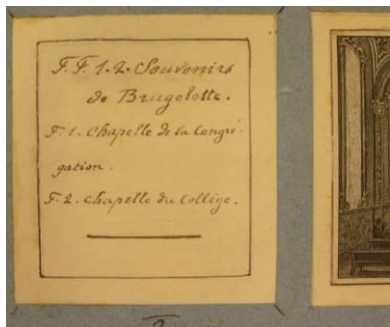 F. F. 1. 2. Souvenirs
de Brugelette.
F. 1. Chapelle de la Congré-
gation.
F. 2. Chapelle du Collège.